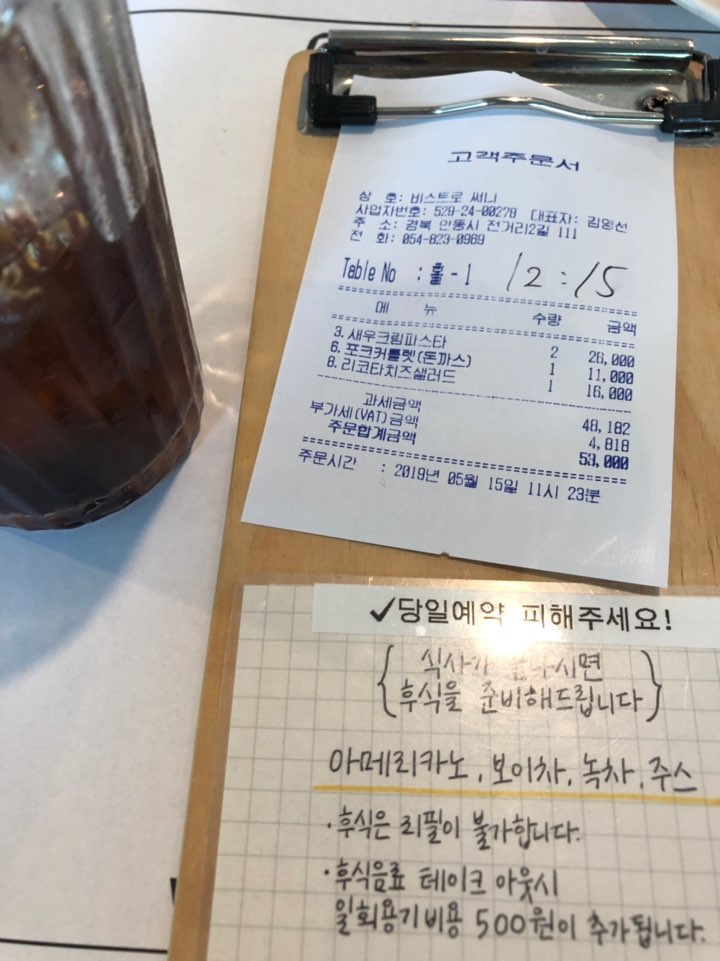 고객주문서
상 호: 비스트로 써니
사업자번호: 529-24-00278 대표자: 김영선
주 소: 경북 안동시 전거리2길 111
전 화: 054-823-0969
Table No : 홀 - 1 12:15
메 뉴 수량 금액
3. 새우크림파스타 2 26,000
6. 포크커틀렛(돈까스) 1 11,000
8. 리코타치즈샐러드 1 16,000
과세금액 48,182
부가세(VAT)금액 4,818
주문합계금액 53,000
주문시간 : 2019년 05월 15일 11시 23분
✓당일예약 피해주세요!
{ 식사가 시면
후식을 준비해드립니다 }
아메리카노, 보이차, 녹차, 주스
·후식은 리필이 불가합니다.
·후식음료 테이크 아웃시
일회용기비용 500원이 추가됩니다.